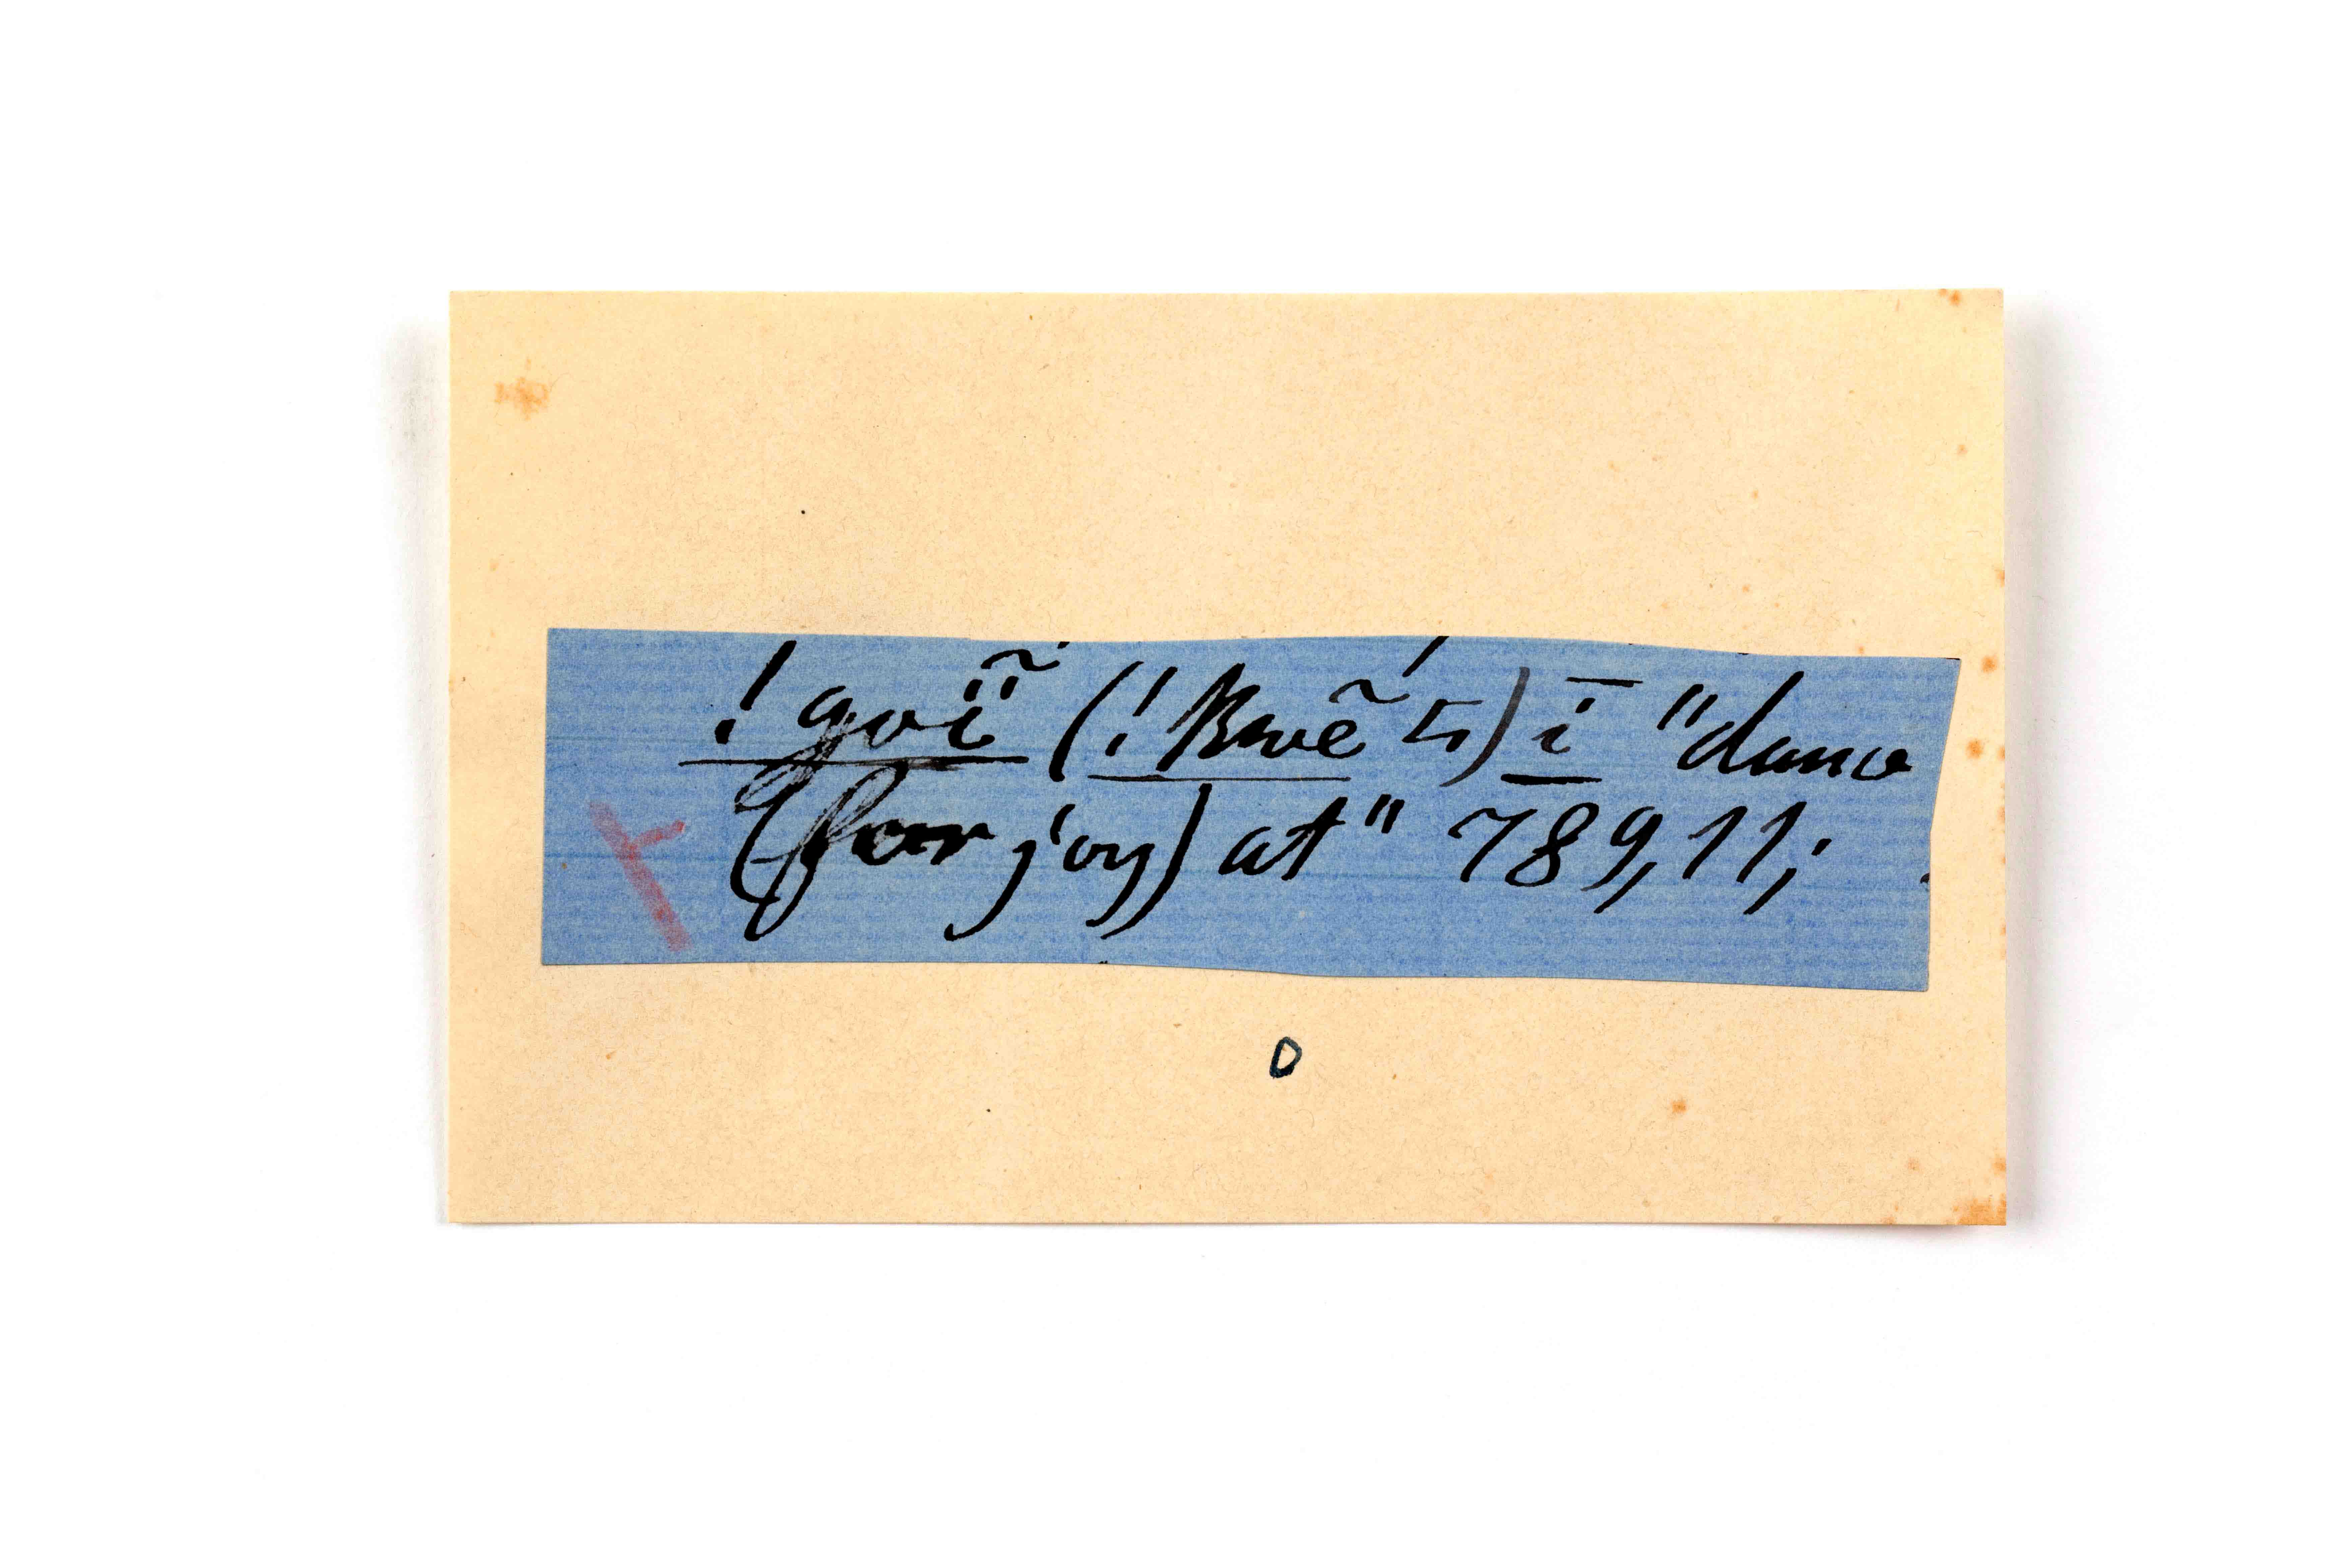 ! goï̃ (! Kwẽ ʼn) ī "dance
(for joy) at" 789,11;